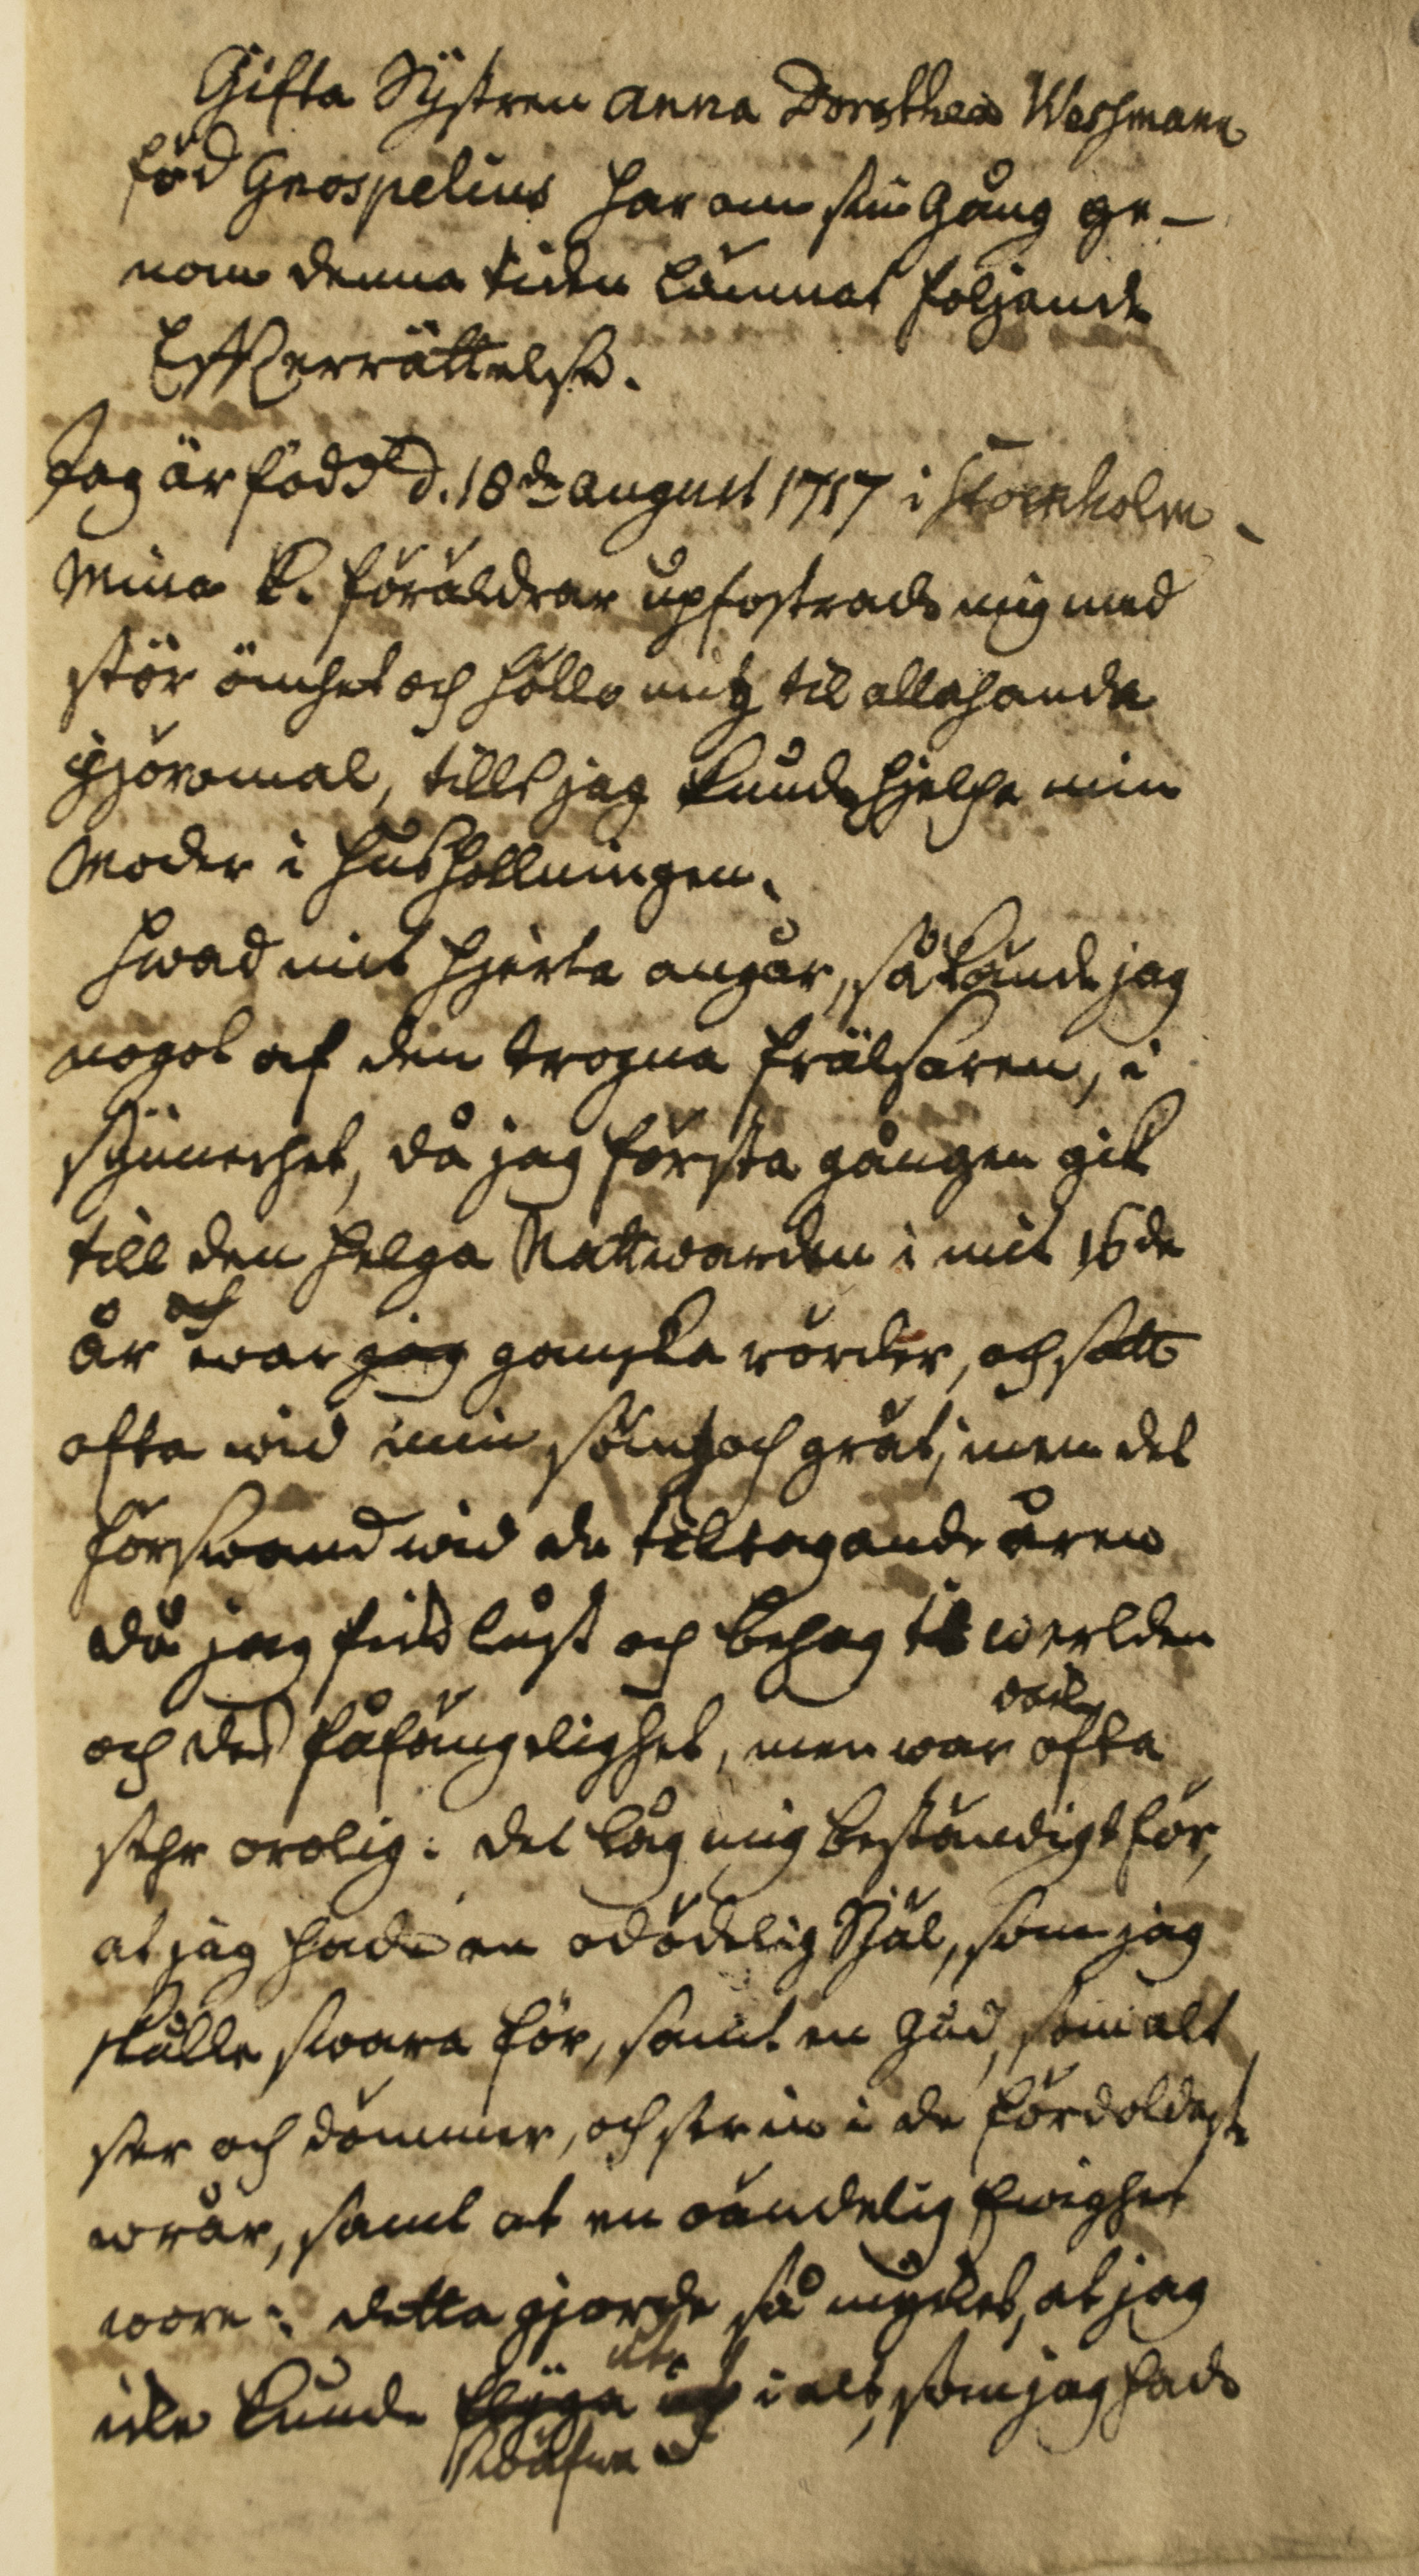 Gifta Systren Anna Dorothea Weshmann
föd Grospelius har om sin Gång ge-
nom denna tiden lämnat följande
Efterrättelse.
Jag är född d. 18de August 1717 i Stockholm.
Mina k. föräldrar upfostrade mig med
stör ömhet och höllo mig til allahanda
giöromal, tills jag kunde hjelpa min
Moder i hushollningen.
Hwad mit hjerta angår, så kände jag
nogot af den trogna frälsaren, i
synnerhet, då jag första gången gik
till den helga Nattwarden i mit 16de
år och war jag ganska rörder, och satt
ofta wid min söm och gråt; men det
förswand wid de tiltagande åren
då jag fick lust och behag til werlden
och des fåfängelighet, men war dock ofta
sehr orolig: det låg mig beständigt för,
at jag hade en odödelig Själ, som jag
skulle swara för, samt en Gud, som alt
ser och dömmer, och ser in i de fördoldaste
wrår, samt at en oändelig Ewighet
wore: detta gjorde så mycket, at jag
icke kunde swäfwa ut i alt, som jag hade